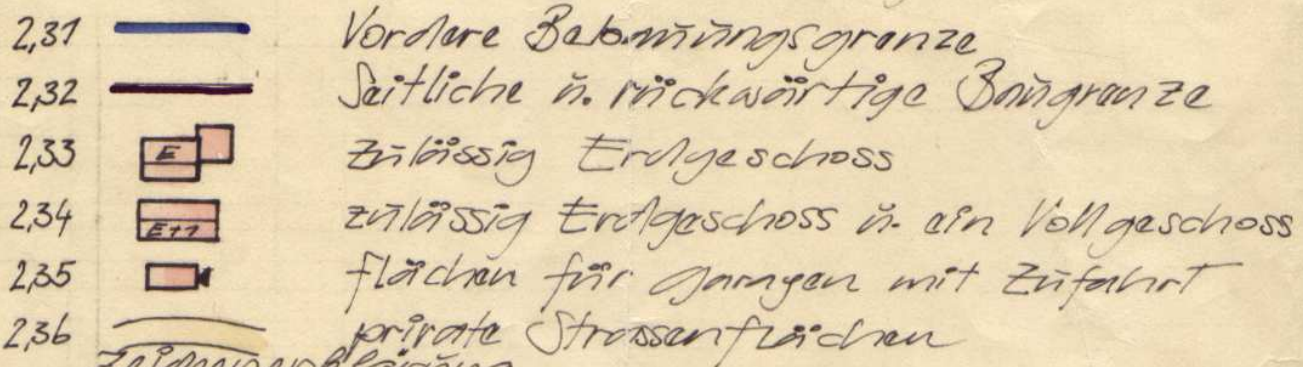 2,31 Vordere Bebauungsgrenze
2,32 Seitliche u. rückwärtige Baugrenze
2,33 E zulässig Erdgeschoss
2,34 E+1 zulässig Erdgeschoss u. ein Vollgeschoss
2,35 flächen für Garagen mit Zufahrt
2,36 private Strassenflächen
Zeichenerklärung